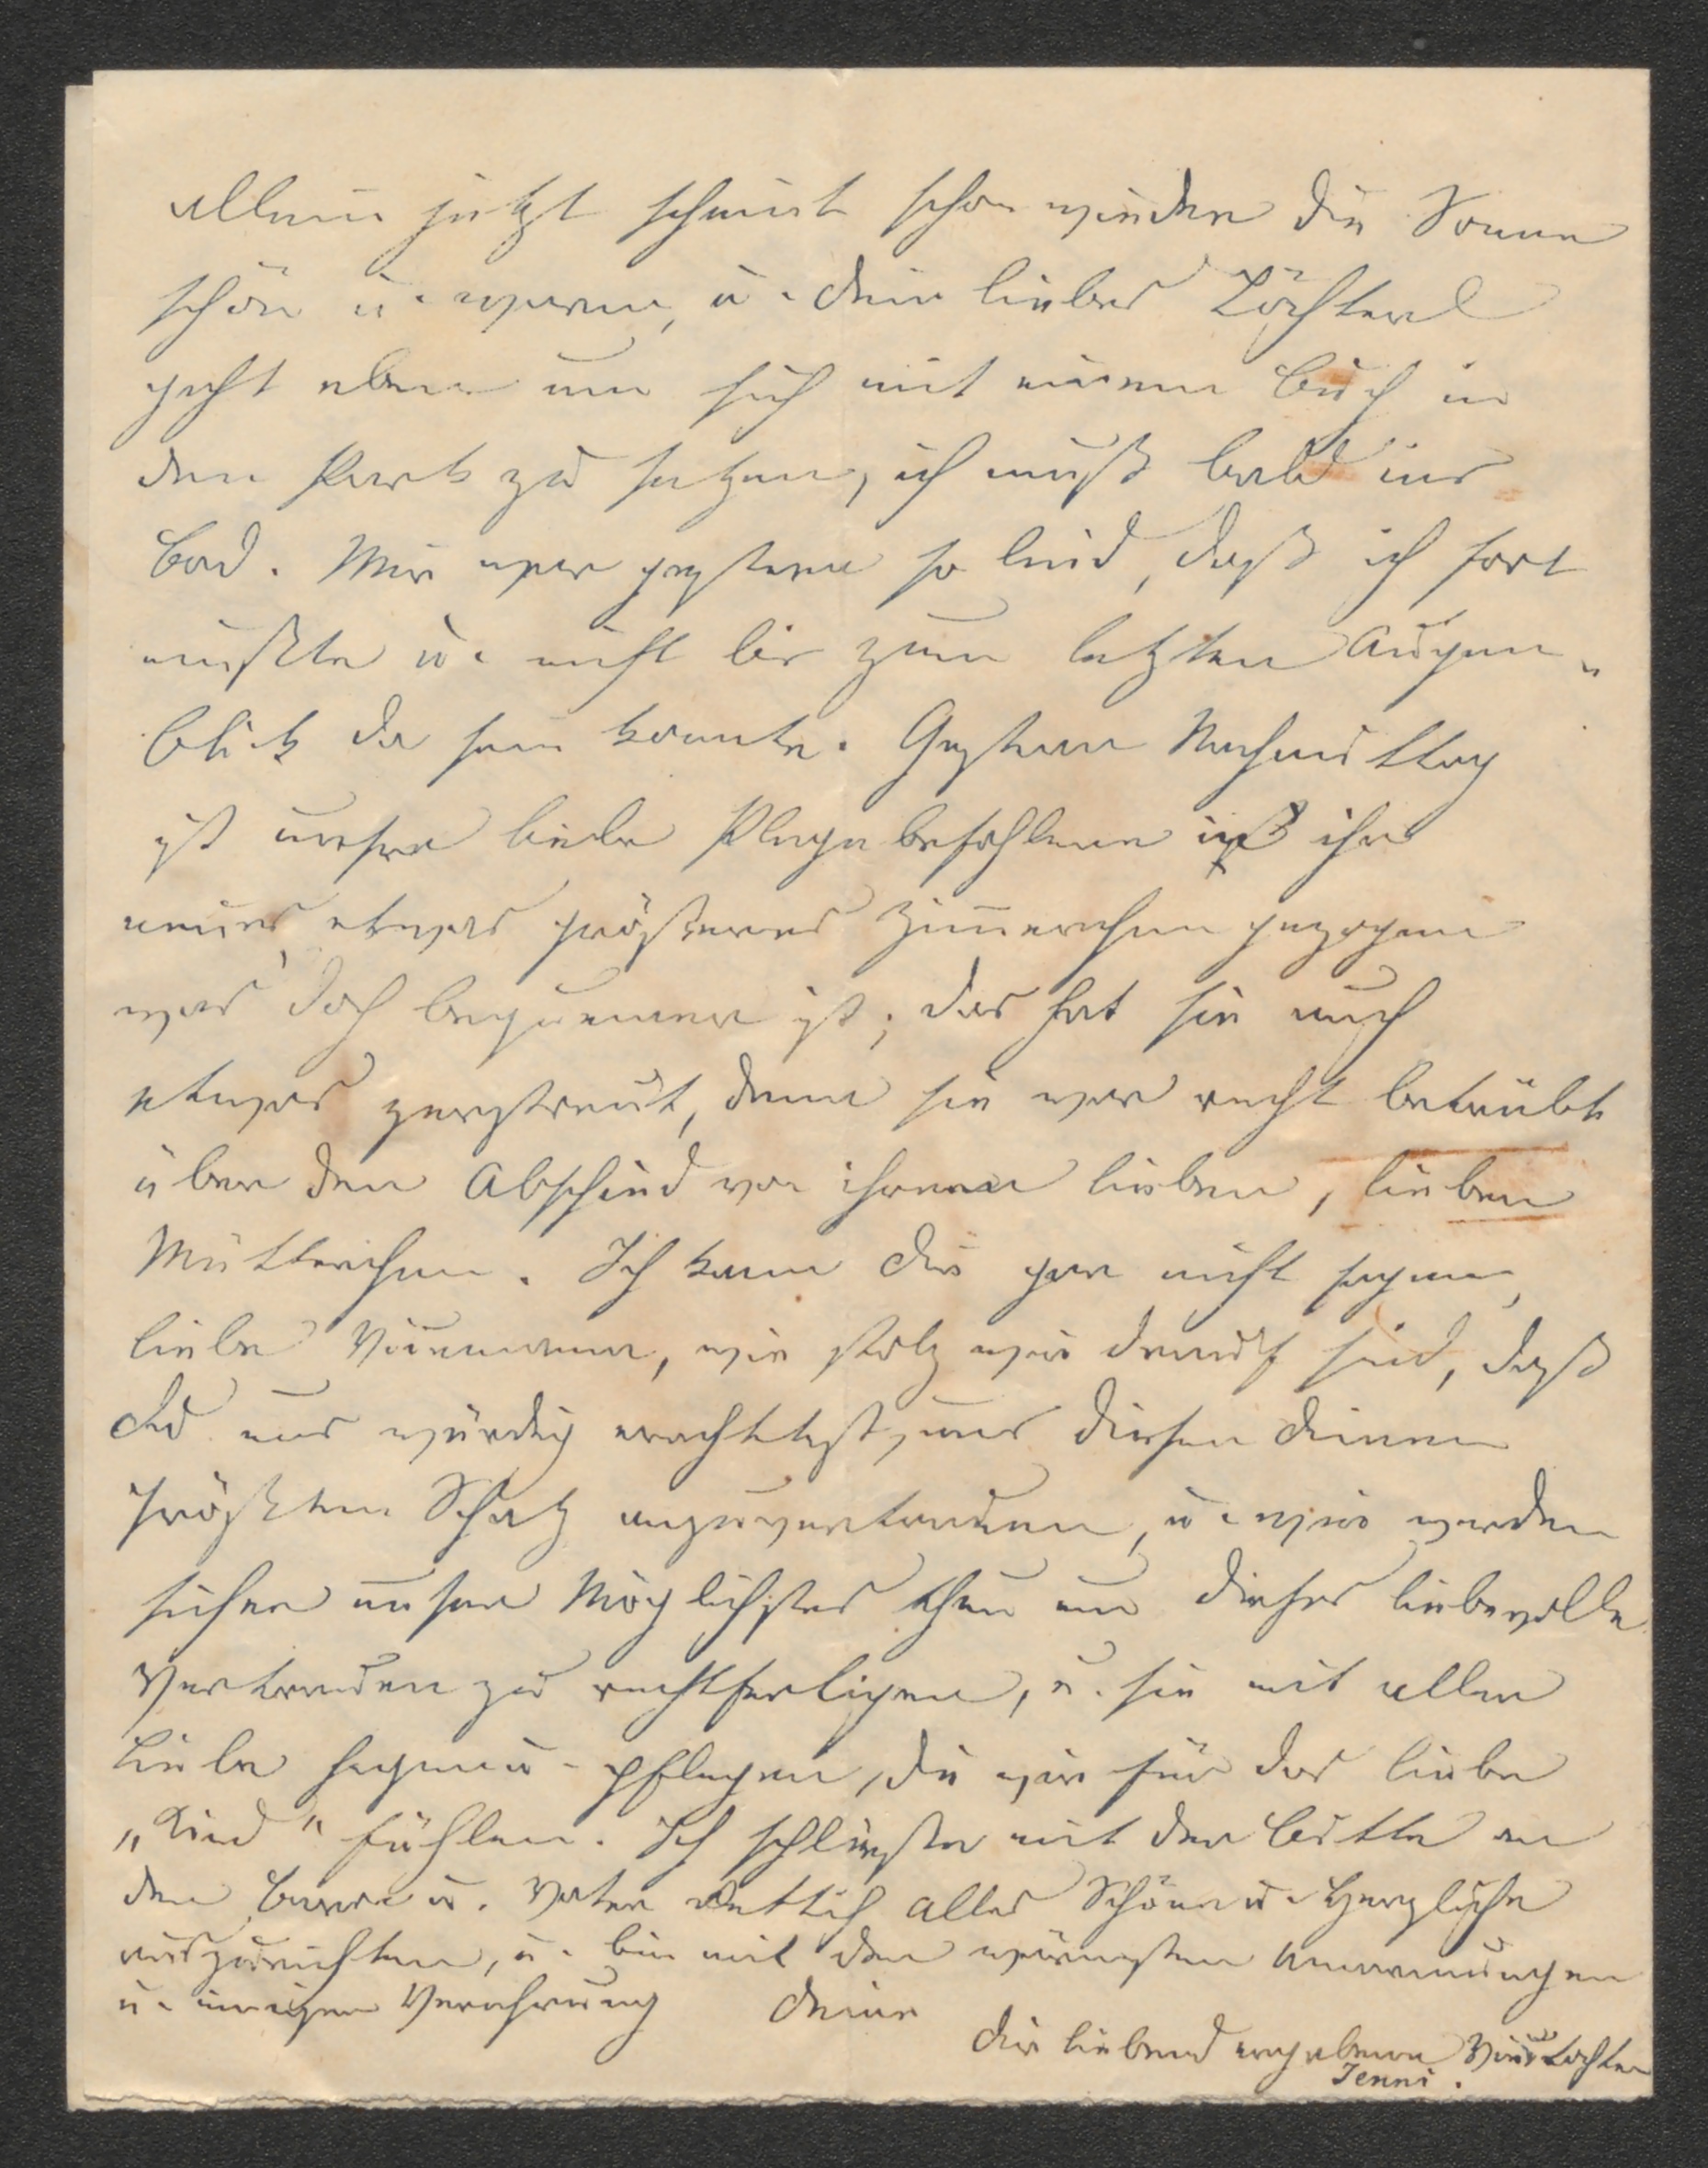 allein jetzt scheint schon wieder die Sonne
schön u. warm, u. dein liebes Töchterl
geht eben um sich mit einem Buch in
den Park zu setzen, ich muß bald ins
Bad. Mir war gestern so leid, daß ich fort
mußte u. nicht bis zum letzten Augen„
blick da sein konnte. Gestern Nachmittag
ist unsre liebe Pflegebefohlene in ihr
neues etwas größeres Zimmerchen gezogen
was doch bequemer ist; das hat sie auch
etwas zerstreut, denn sie war recht betrübt
über den Abschied von ihrem lieben, lieben
Mütterchen. Ich kann dir gar nicht sagen,
liebe, wie stolz wir darauf sind, daß
du uns würdig erachtetest, uns diesen deinen
größten Schatz anzuvertrauen, u. wir werden
sicher unser Möglichstes thun um dieses liebevolle
Vertrauen zu rechtfertigen, u. sie mit aller
Liebe hegen u. pflegen, die wir für das liebe
„Kind" fühlen. Ich schließe mit der Bitte an
den u. Vater Rettich alles Schöne u. Herzliche
auszurichten, u. bin mit den wärmsten Umarmungen
u. inniger Verehrung deine
dir liebend ergebene
Jenni.